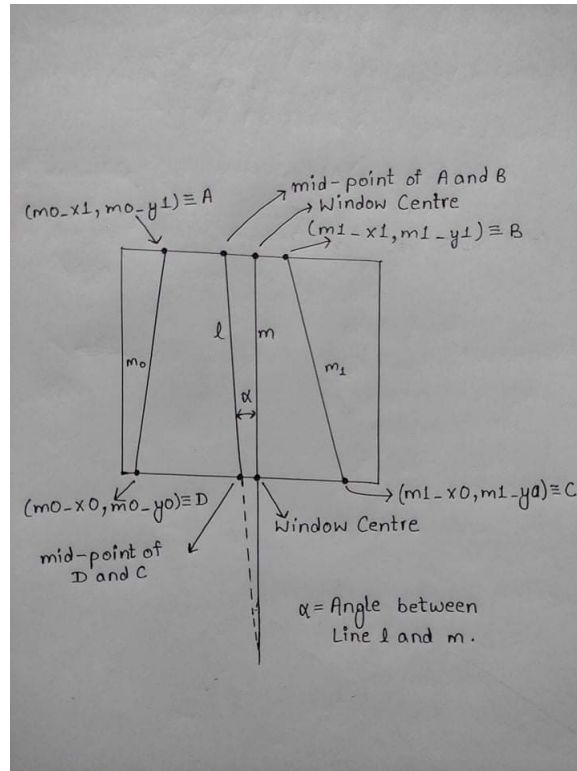 mid-point of A and B
Window Centre
(m0-x1, m0-y1) ≡ A
(m1-x1, m1-y1) ≡ B
l
m
m0
m1
α
(m0-x0, m0-y0) ≡ D
(m1-x0, m1-y0) ≡ C
Window Centre
mid-point of
D and C
α = Angle between
Line l and m.